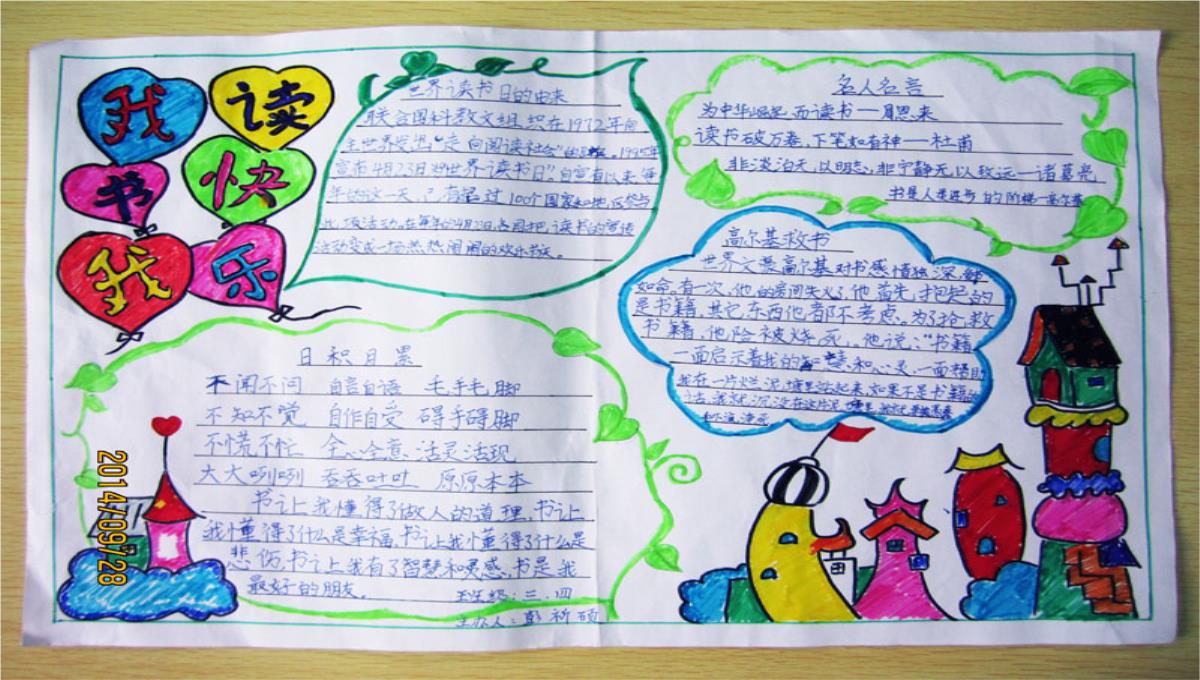 我读书快我乐
世界读书日的由来
联合国科教文组织在1972年向
全世界发出“走向阅读社会”的 1995年
宣布4月23日为“世界读书日”自宣布以来,每
年的这一天,有超过100个国家和地区参与
此项活动。在每年的4月23日,各国把读书的宣传
活动变成一场热热闹闹的欢乐书庆。
日积月累
不闻不问 自言自语 毛手毛脚
不知不觉 自作自受 碍手碍脚
不慌不忙 全心全意、活灵活现
大大咧咧 吞吞吐吐 原原本本
书让上我懂得了做人的道理,书让上
我懂得了什么是幸福,书让上我懂得了什么是
悲伤,书让上我有了智慧和灵感,书是我
最好的朋友。
班级:三.四
主办人:彭祈硕
名人名言
为中华崛起而读书——周恩来
读书破万卷,下笔如有神——杜甫
非淡泊无以明志,非宁静无以致远——诸葛亮
书是人类进步的阶梯—高尔基
高尔基救书
世界文豪高尔基对书感情独深,爱书
如命,有一次,他的房间失火了,他首先抱起的
是书籍,其它东西他都不考虑。为了抢救
书籍,他险被烧死,他说:“书籍
一面启示着我的智慧和心灵,一面帮助
我在一片烂泥塘里站起来,如果不是书籍的
话,我就沉没在这片泥
2014/09/28